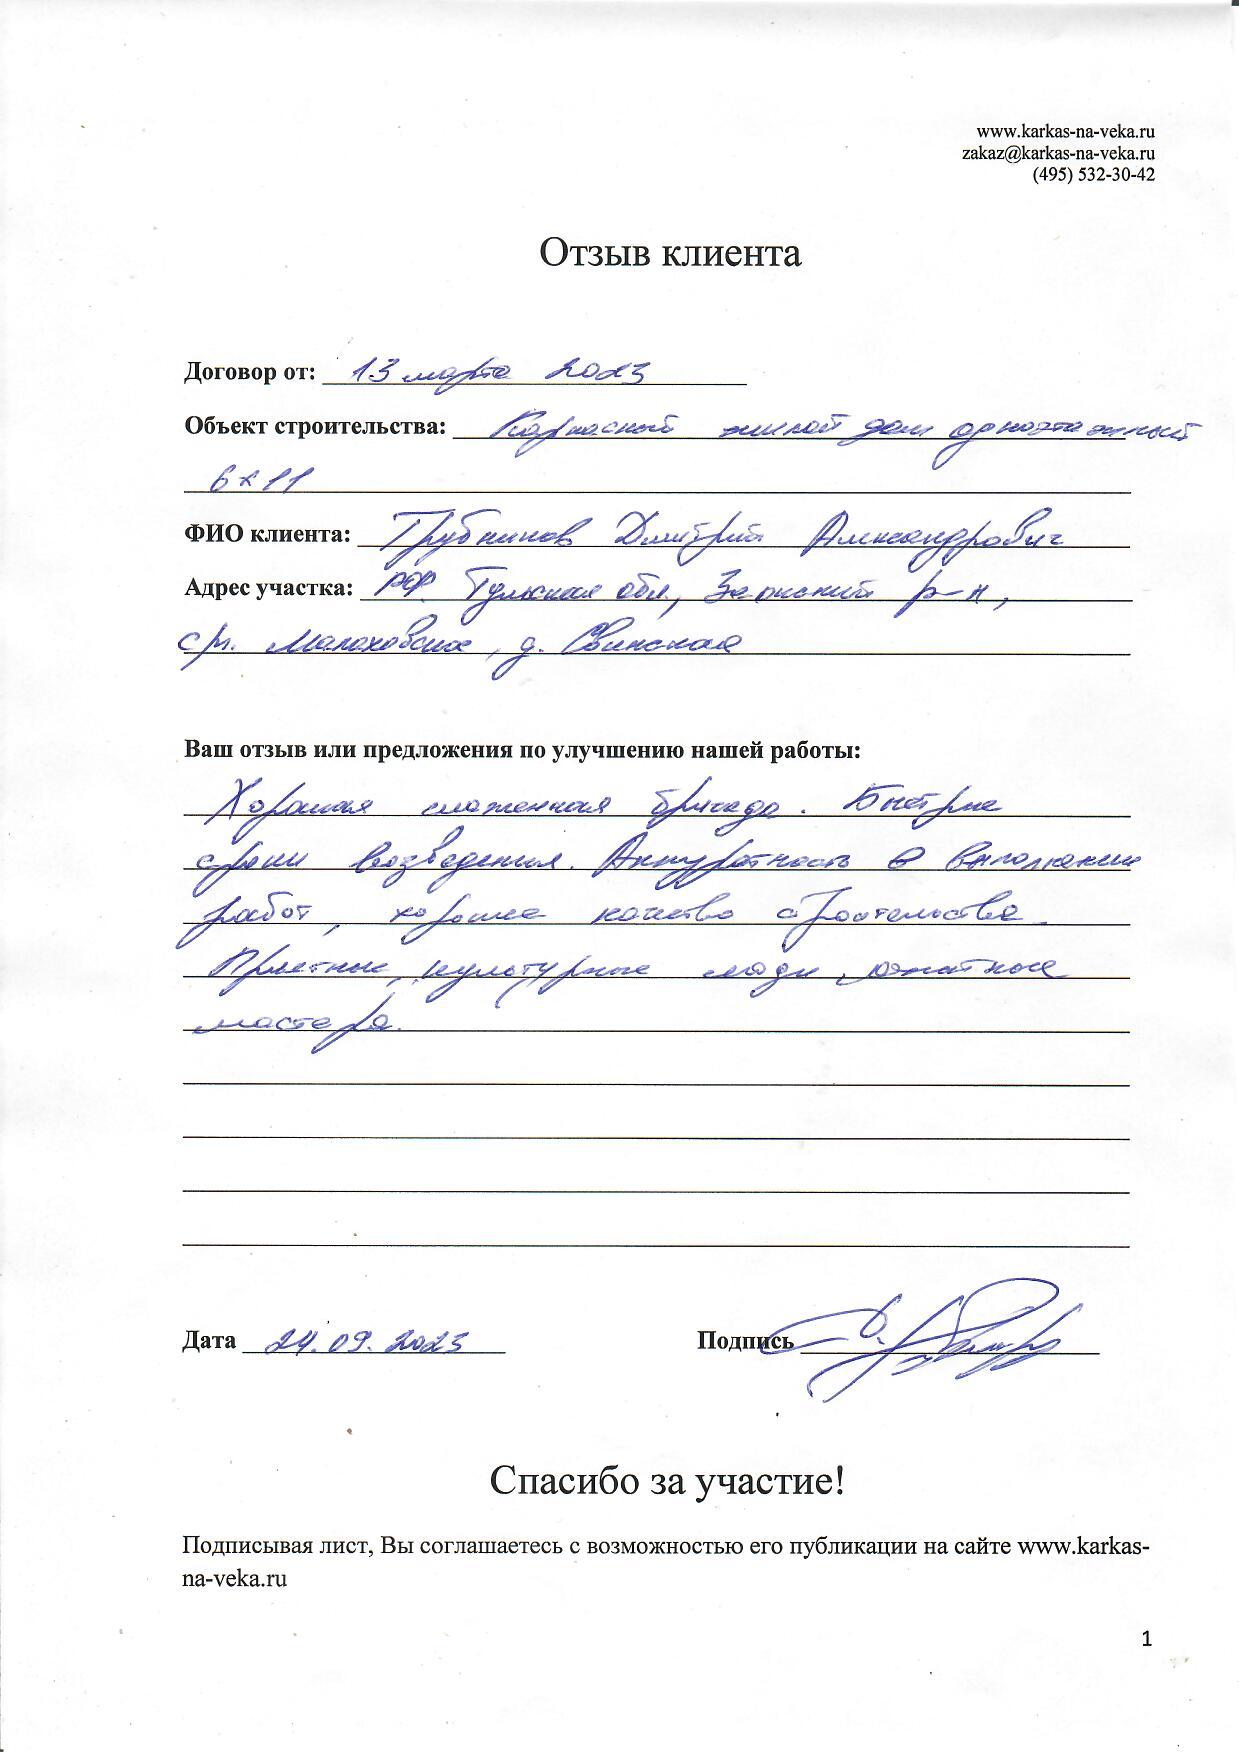 www.karkas-na-veka.ru
zakaz@karkas-na-veka.ru
(495) 532-30-42
Отзыв клиента
Договор от: 13 марта 2023
Объект строительства: Каркасный жилой дом одноэтажный
6х11
ФИО клиента: Трубников Дмитрий Александрович
Адрес участка: РФ Тульская обл., Заокский р-н,
с/п. Малаховское, д. Свинская
Ваш отзыв или предложения по улучшению нашей работы:
Хорошая слаженная бригада. Быстрые
сроки возведения. Аккуратность в выполнении
работ, хорошее качество строительства.
Приятные, культурные люди,
мастера.
Дата 24.09.2023
Подпись
Спасибо за участие!
Подписывая лист, Вы соглашаетесь с возможностью его публикации на сайте www.karkas-
na-veka.ru
1